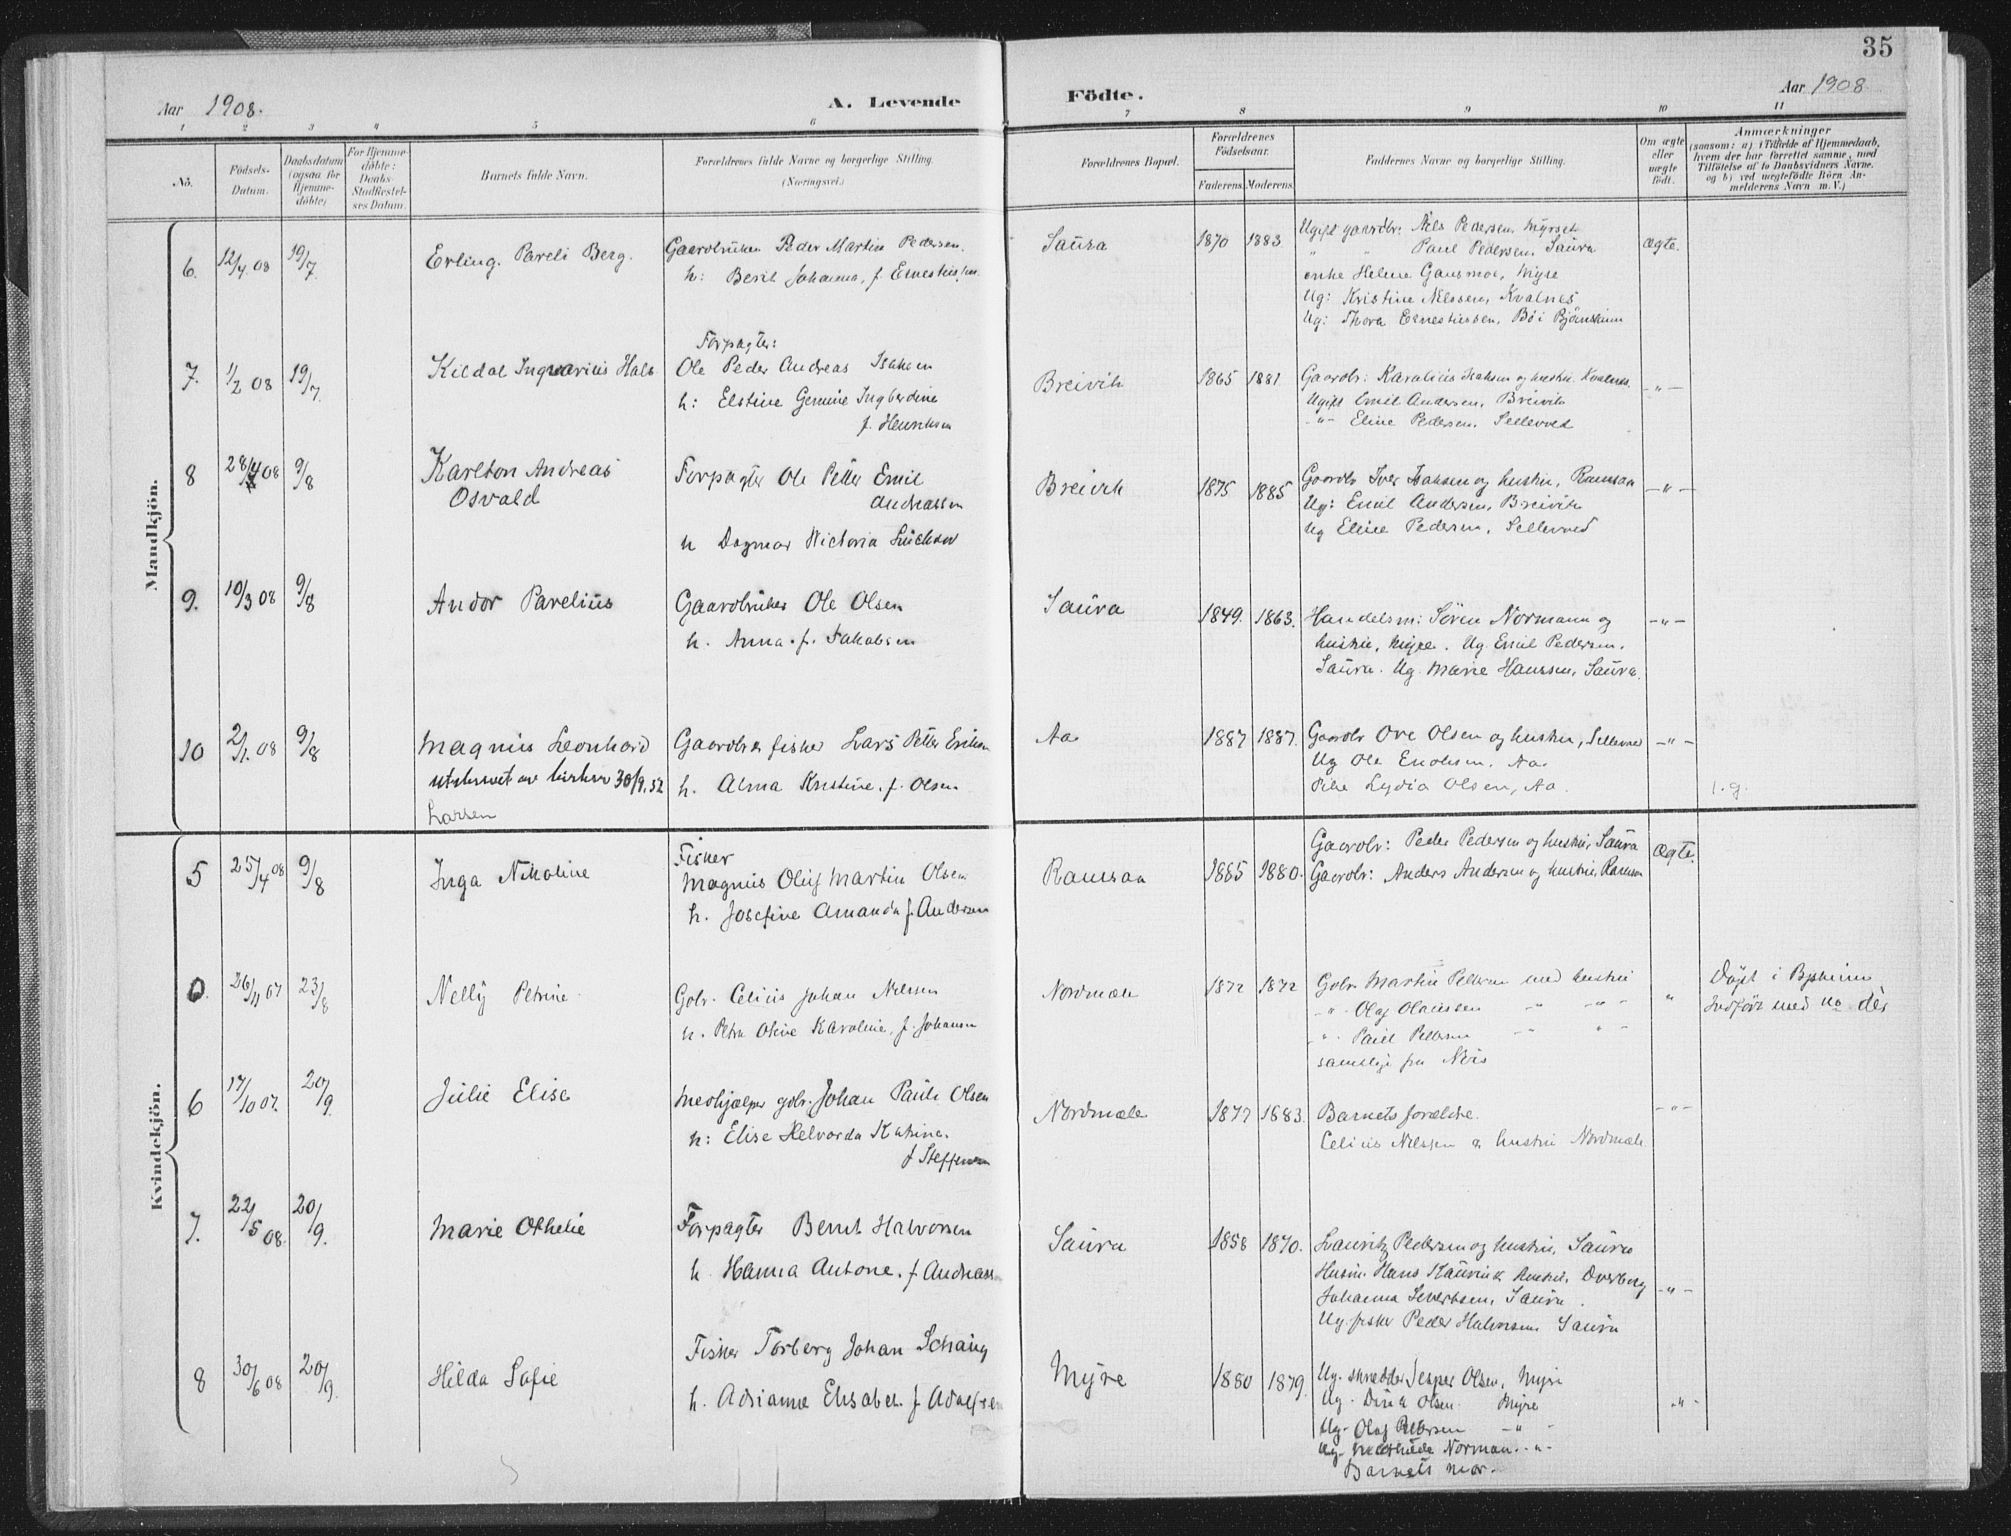 35
Aar 1908.
A. Levende
Födte.
Aar 1908
1 2 3 4 5 6 7 8 9 10 11
No.
Födsels-
Datum.
Daabsdatum
(ogsaa for
Hjemme-
döbte)
For Hjemme-
döbte:
Daabs-
Stadfæstel-
ses Datum.
Barnets fulde Navn.
Forældrenes fulde Navne og borgerlige Stilling.
(Næringsvei.)
Forældrenes Bopæl.
Forældrenes
Födselsaar.
Faderens. Moderens.
Faddernes Navne og borgerlige Stilling.
Om ægte
eller
uægte
födt.
Anmærkninger
(saasom: a) i Tilfælde af Hjemmedaab,
hvem der har forrettet samme, med
Tilföielse af to Daabsvidners Navne.
og b) ved uægtefödte Börn An-
melderens Navn m. V.)
Mandkjön.
6. 12/4 08 19/7. Erling Pareli Berg.
Gaardbruker Peder Martin Pedersen.
h: Berit Johanna, f.
Saura 1870 1883
Ugift gaardbr: Nils Pedersen Myrset
" " Paul Pedersen, Saura
enke Helene Gausmoe, Myre
Ug: Kristine Nilssen, Kvalnes
Ug: Thora Ernestussen, Bö i Bjørnskinn
ægte.
7. 1/2 08 19/7. Kildal Ingvarius Hals
Forpagter:
Ole Peder Andreas Isaksen
h: Elstine Gemine Ingberdine
f. Henriksen
Breivik 1865 1881
Gaardbr: Karelius Isaksen og hustru. Kvalnes.
Ugift Emil Andersen, Breivik
-"- Eline Pedersen, Selleved
-"-
8 28/4 08 9/8 Karlton Andreas
Osvald
Forpagter Ole Petter Emil
Andreassen
h Dagmar Victoria
Breivik 1875 1885
Gaardb Iver Isaksen og hustru, Ramsaa
Ug: Emil Andersen, Breivik
Ug Eline Pedersen, Selleved
-"-
9. 10/3 08 9/8 Andor Parelius
Gaardbruker Ole Olsen
h. Anna. f. Jakobsen
Saura 1849. 1863.
Handelsm: Sören Normann og
hustru, Myre. Ug. Emil Pedersen.
Saura. Ug. Marie Hanssen, Saura.
-"-
10 2/1. 08 9/8 Magnus Leonhard
utskrevet av kirken 30/9.52
Larsen
Gaardbr & fisker Lars Peter
h. Alma Kristine. f. Olsen
Aa 1887 1887.
Gaardb Ove Olsen og hustru, Selleved
Ug Ole Enoksen. Aa.
Pike Lydia Olsen, Aa.
-"-
1.g.
Kvindekjön.
5 25/4 08 9/8 Inga Nikoline
Fisker
Magnus Oluf Martin Olsen
h. Josefine Amanda f. Andersen
Ramsaa 1885 1880.
Gaardbr: Peder Pedersen og hustru, Saura
Gaardbr: Anders Andersen og hustru, Ramsaa
Ægte.
0. 26/11 07 23/8 Nelly Petrine
Gbr. Celius Johan Nilssen
h. Petra Olive Karoline, f. Johansen
Nordmæle 1872 1872
Gbr. Martin Pettersen med hustru
-"- Olaf Olaussen -"- -"-
-"- Paul Pettersen -"- "-
samtlige fra
"
Döpt i Bjskinn
Indført med no der
6 17/10 07. 20/9. Julie Elise
Medhjælper gbr. Johan Pauli Olsen
h: Elise Helvarda Katrine.
f Steffensen
Nordmæle 1877 1883.
Barnets forældre.
Celius Nilssen & hustru Nordmæle
-"-
7. 22/5 08. 20/9. Marie Othelie
Forpagter Bernt Halvorsen
h. Hanna Antone. f Andreassen
Saura 1858 1870.
Lauritz Pedersen og hustru, Saura
Husm. Hans & hustru, Overberg
Johanna Sivertsen, Saura.
Ug. fisker Peder Halvorsen Saura
-"-
8 30/6 08 20/9. Hilda Sofie
Fisker Torberg Johan Schang
h. Adrianne Elisabet. f
Myre 1880 1879.
Ug. skredder Jesper Olsen, Myre
Ug. Olsen. Myre
Ug. Olaf Pettersen -"-
Ug. Norman. -"-
Barnets mor.
-"-